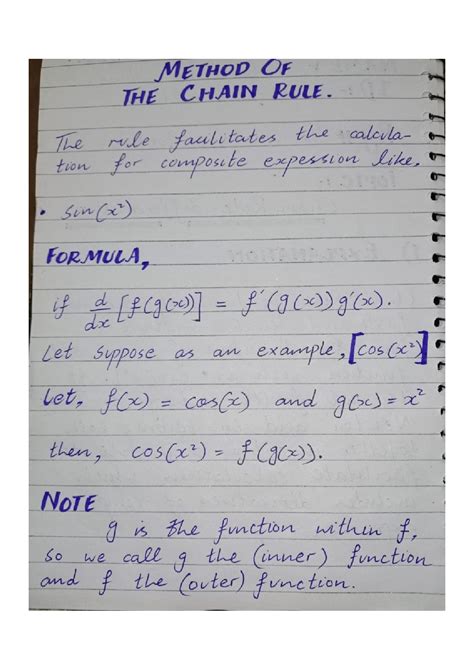 METHOD OF
THE CHAIN RULE.
The rule facilitates the calcula-
tion for composite expession like,
• sin(x²)
FORMULA,
if d/dx [f(g(x))] = f'(g(x))g'(x).
Let suppose as an example, [cos(x²)]
Let, f(x) = cos(x) and g(x) = x²
then, cos(x²) = f(g(x)).
NOTE
g is the function within f,
so we call g the (inner) function
and f the (outer) function.